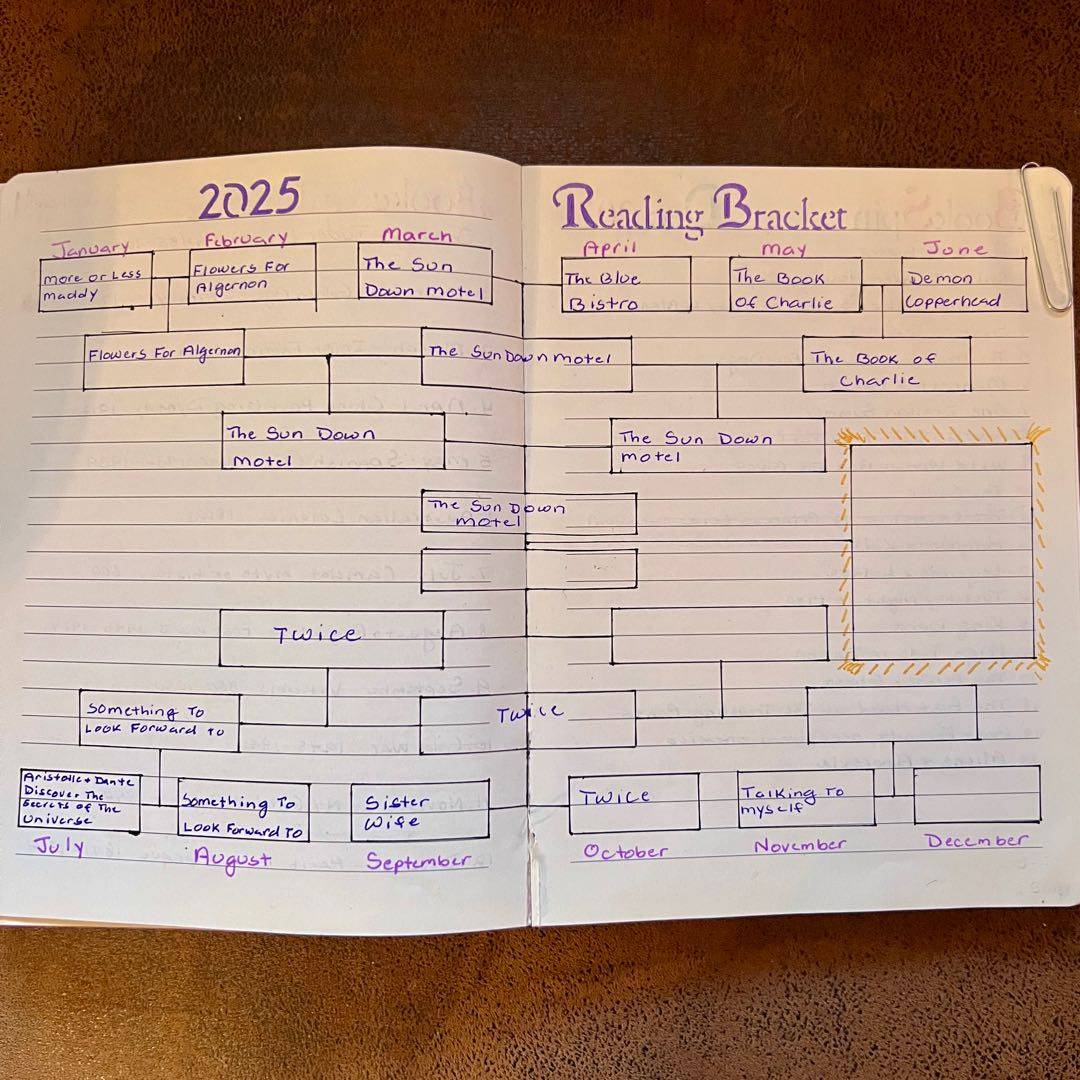 2025
Reading Bracket
January
February
March
April
May
June
More or Less
Maddy
Flowers For
Algernon
The Sun
Down Motel
The Blue
Bistro
The Book
Of Charlie
Demon
Copperhead
Flowers For Algernon
The Sun Down Motel
The Book of
Charlie
The Sun Down
Motel
The Sun Down
Motel
The Sun Down
Motel
Twice
Something To
Look Forward To
Twice
Aristotle + Dante
Discover The
Secrets of The
Universe
Something To
Look Forward To
Sister
Wife
Twice
Talking To
Myself
July
August
September
October
November
December